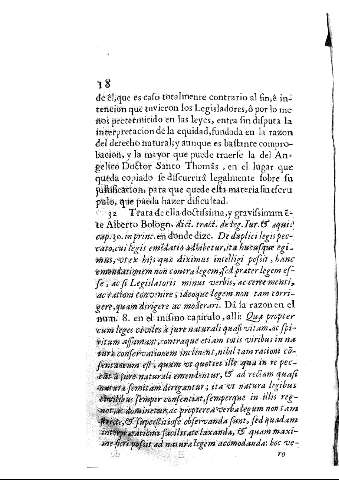 18
de él, que es caso totalmente contrario al fin, è in-
tencion que tuvieron los Legisladores, ò por lo me
nos pretermitido en las leyes, entra sin disputa la
interpretacion de la equidad, fundada en la razon
del derecho natural; y aunque es bastante compro-
bacion, y la mayor que puede traerse la del An-
gelico Doctor Santo Thomàs, en el lugar que
queda copiado se discurrirá legalmente sobre su
justificacion, para que quede esta materia sin escru
pulo, que pueda hazer dificultad.
32 Trata de ella doctissima, y gravissimamē-
te Alberto Bologn. dict. tract. de leg. Iur. & æquit.
cap. 30. in princ. en donde dize. De duplici legis pec-
cato, cui legis emēdatio adhibetur, ita hucusque egi-
mus, vt ex his quæ diximus intelligi possit, hanc
emendationem non contra legem, sed præter legem es-
se, ac si Legislatoris minus verbis, ac certe menti,
ac rationi convenire; ideoque legem non tam corri-
gere, quam dirigere ac moderari. Dà la razon en el
num. 8. en el mismo capitulo, alli: Qua propter
cum leges civiles à iure naturali quasi vitam, ac spi-
ritum assumant, contraque etiam suis viribus in na
turæ conservationem inclinent, nihil tam rationi cō-
sentaneum est, quam vt quoties illæ qua in re pec-
cant à iure naturali emendentur, & ad rectam quasi
naturæ semitam dirigantur; ita vt natura legibus
civilibus semper consentiat, semperque in illis reg-
net, ac dominetur, ac propterea verba legum non tam
strictè, & superstitiosè observanda sunt, sed quadam
interpretationis facilitate laxanda, & quam maxi-
mè fieri possit ad naturæ legem acomodanda: hoc ve-
rò